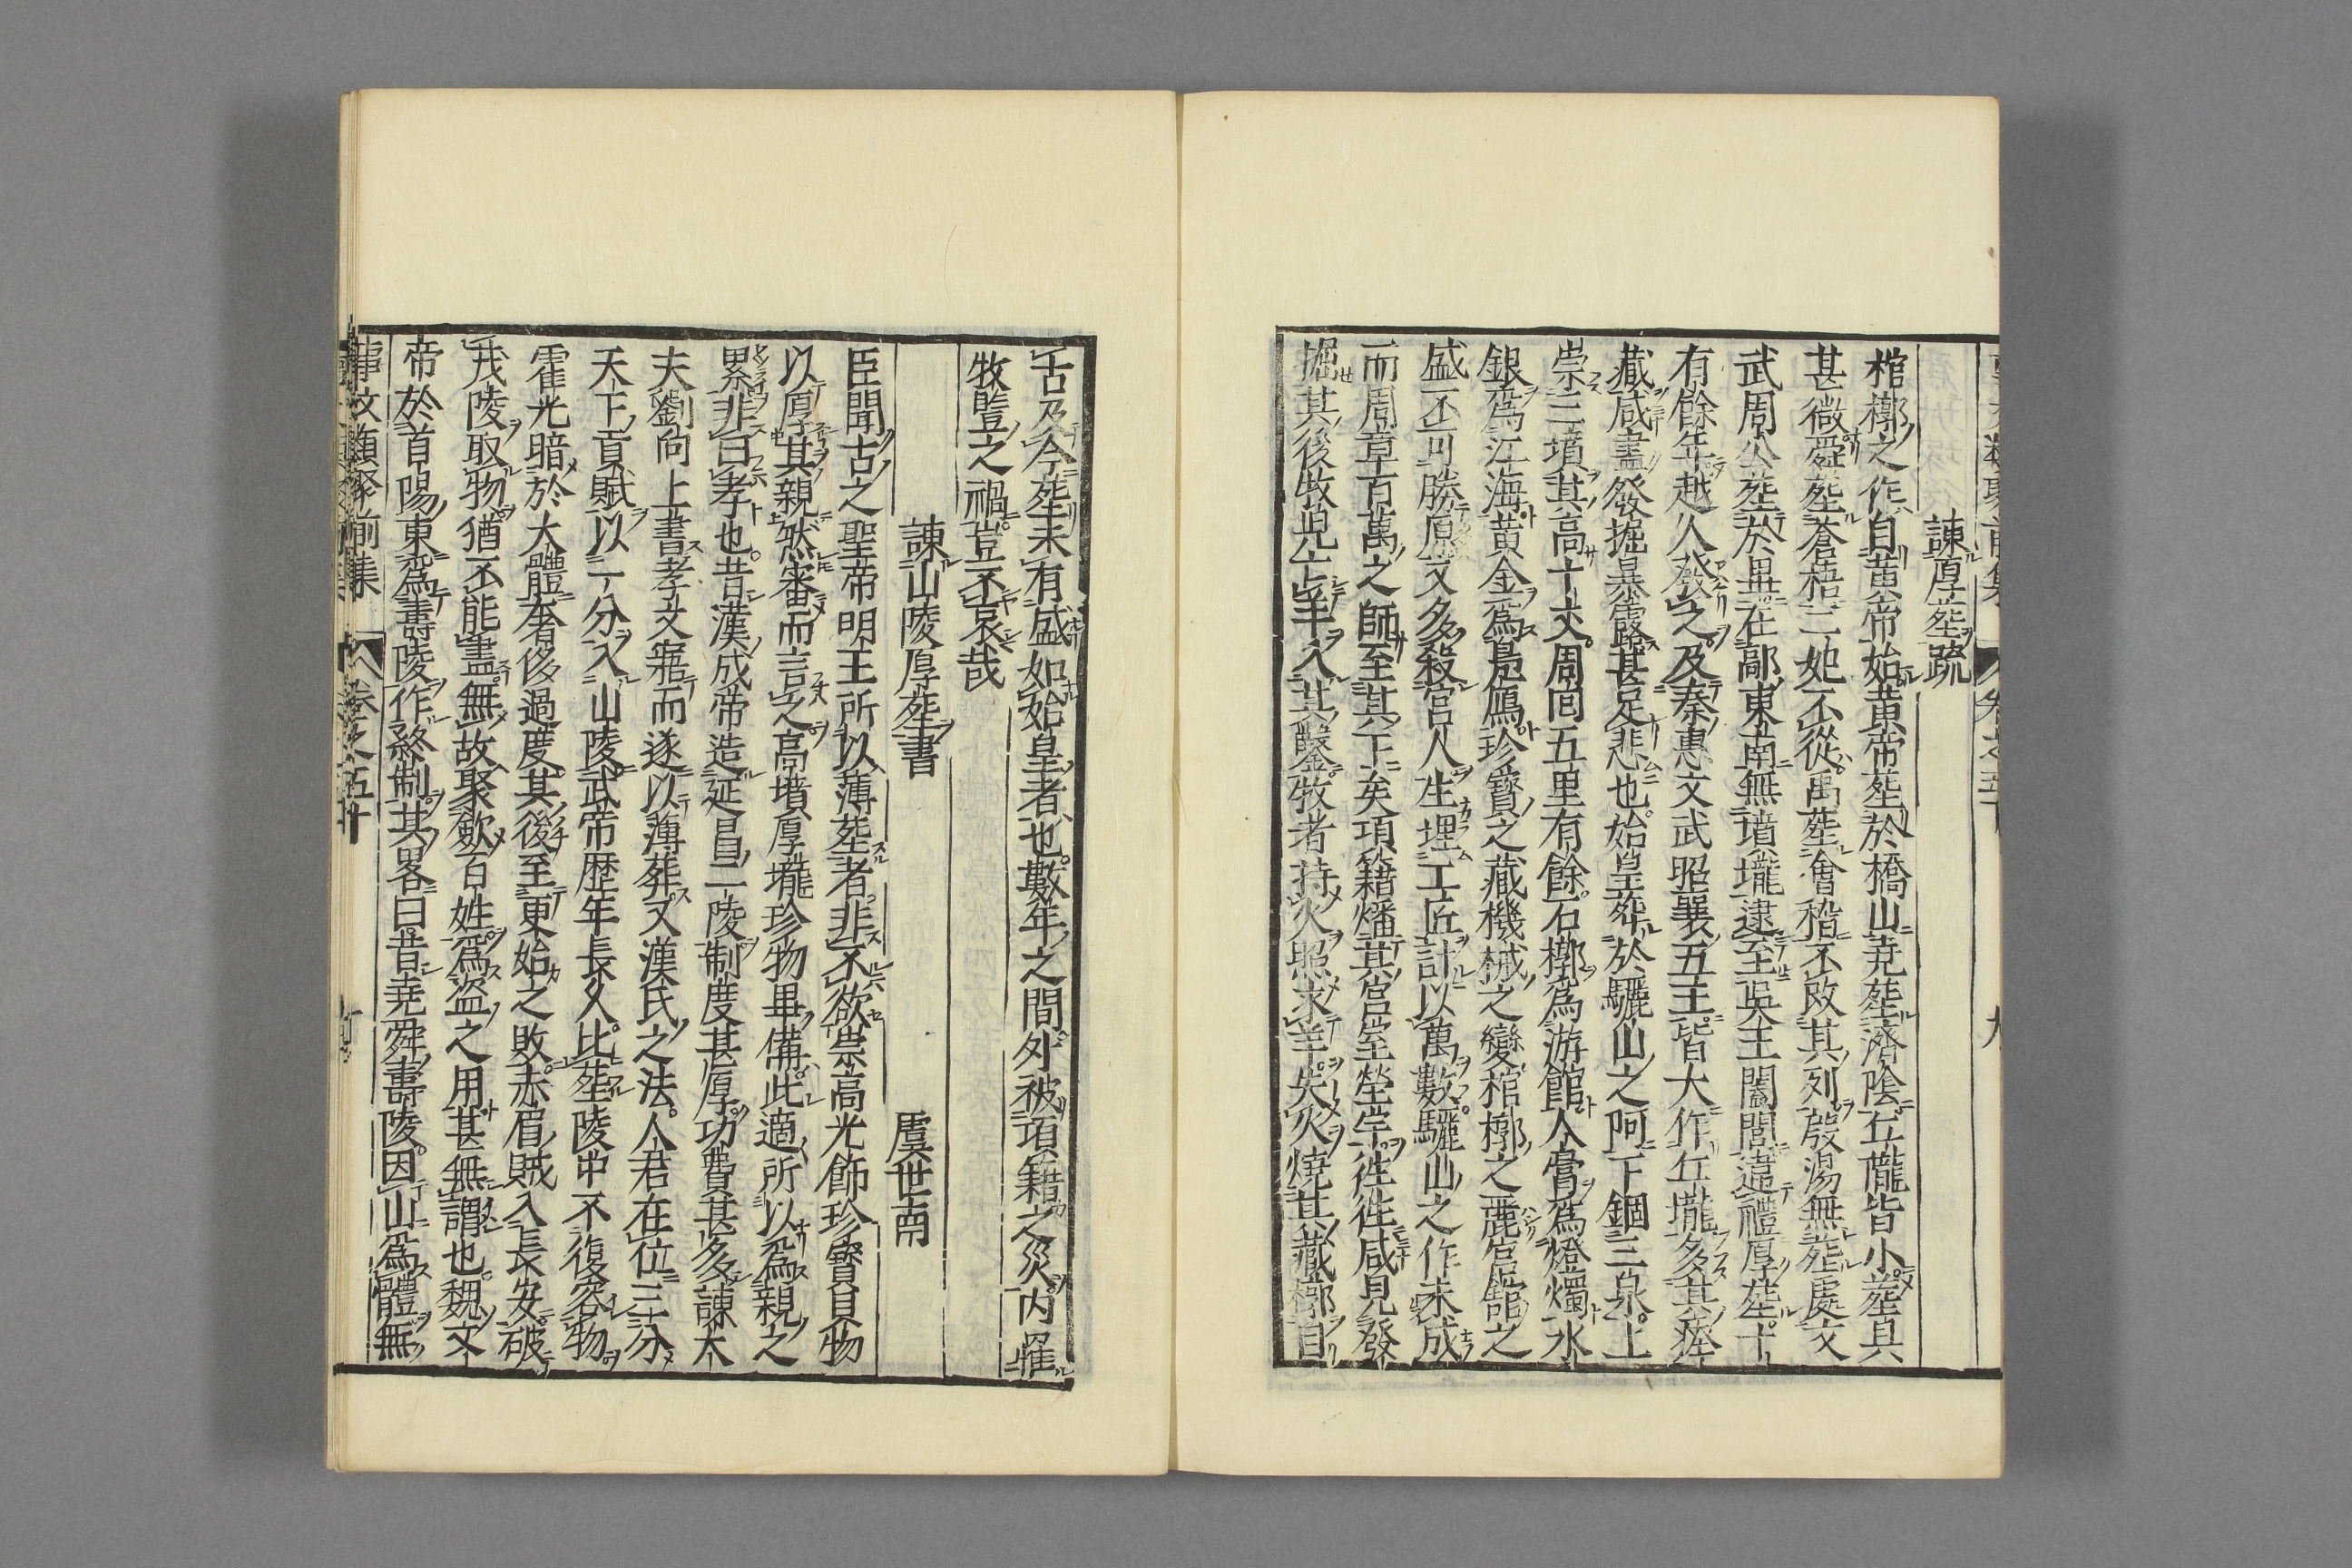 諫厚塟疏
棺槨之作自黄帝始黄帝塟於橋山堯塟濟隂丘壠皆小塟具
甚微舜塟蒼梧二妃不從禹塟會稽不改其列殷湯無塟處文
武周公塟於畢在鄗東南無墳壠逮至吳王闔閭違禮厚塟十
有餘年越人發之及秦惠文武昭襄五王皆大作丘壠多其瘞
藏咸盡發掘暴露甚足悲也始皇葬於驪山之阿下錮三泉上
崇三墳其高十丈周囘五里有餘石槨爲游館人膏爲燈燭水
銀爲江海黄金爲鳧鴈珍寶之藏機械之變棺槨之麗宫舘之
盛不可勝原又多殺宫人生埋工匠計以萬數驪山之作未成
而周章百萬之師至其下矣項籍燔其宫室塋宇徃徃咸見發
掘其後牧児亡羊羊入其鑿牧者持火照求羊失火燒其藏槨自
古及今塟未有盛如始皇者也數年之間外被項籍之災内羅
牧豎之禍豈不哀哉
諫山陵厚塟書 虞世南
臣聞古之聖帝明王所以薄塟者非不欲崇高光飾珍寳具物
以厚其親然審而言之高墳厚壠珍物畢備此適所以爲親之
累非曰孝也昔漢成帝造延昌二陵制度甚厚功費甚多諫大
夫劉向上書孝文寤而遂以薄葬又漢氏之法人君在位三分
天下貢賦以一分入山陵武帝歴年長久比塟陵中不復容物
霍光暗於大體奢侈過度其後至更始之敗赤眉賊入長安破
茂陵取物猶不能盡無故聚歛百姓爲盗之用甚無謂也魏文
帝於首陽東爲壽陵作終制其畧曰昔堯舜壽陵因山爲體無
事文類聚前集 卷之五十